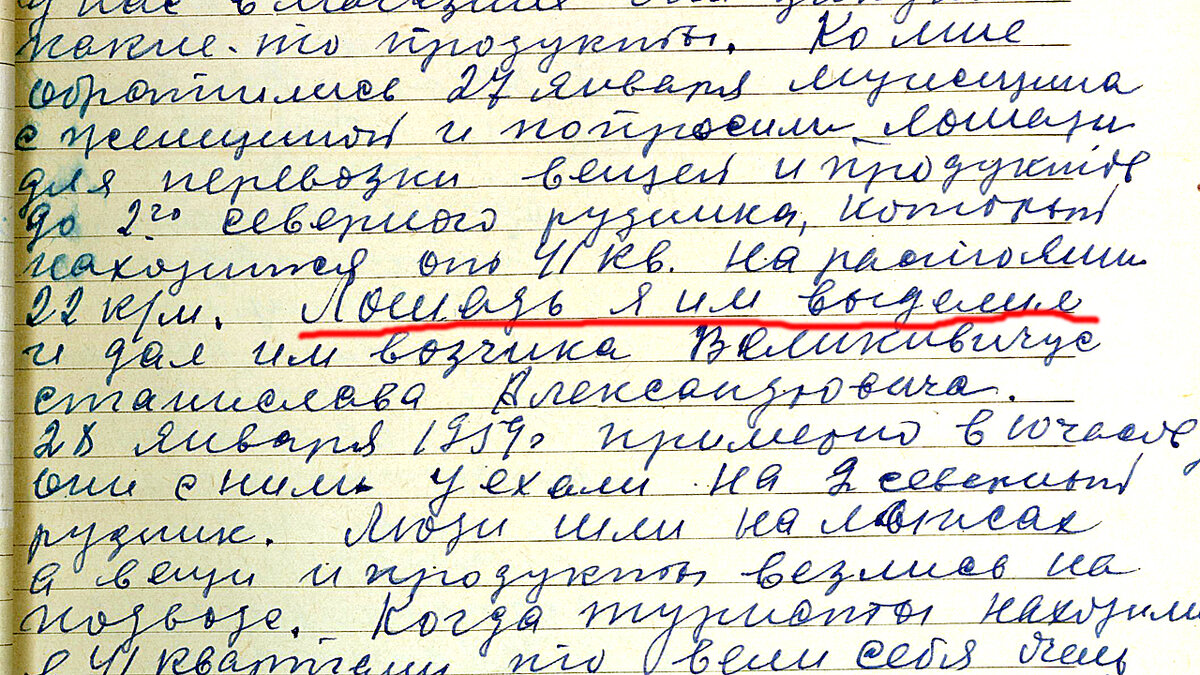 у нас в магазине они
какие-то продукты. Ко мне
обратились 27 января мужчина
с женщиной и попросили лошади
для перевозки вещей и продуктов
до 2го северного рудника, который
находится от 41 кв. на растоянии
22 к/м. Лошадь я им выделил
и дал им возчика Валикивичус
станислава Александровича.
28 января 1959г. примерно в 10 часов
они с ним уехали на 2 северный
рудник. Люди шли на лыжах
а вещи и продукты везлись на
подводе. Когда туристы находили
в 41 квартале, то вели себя очень